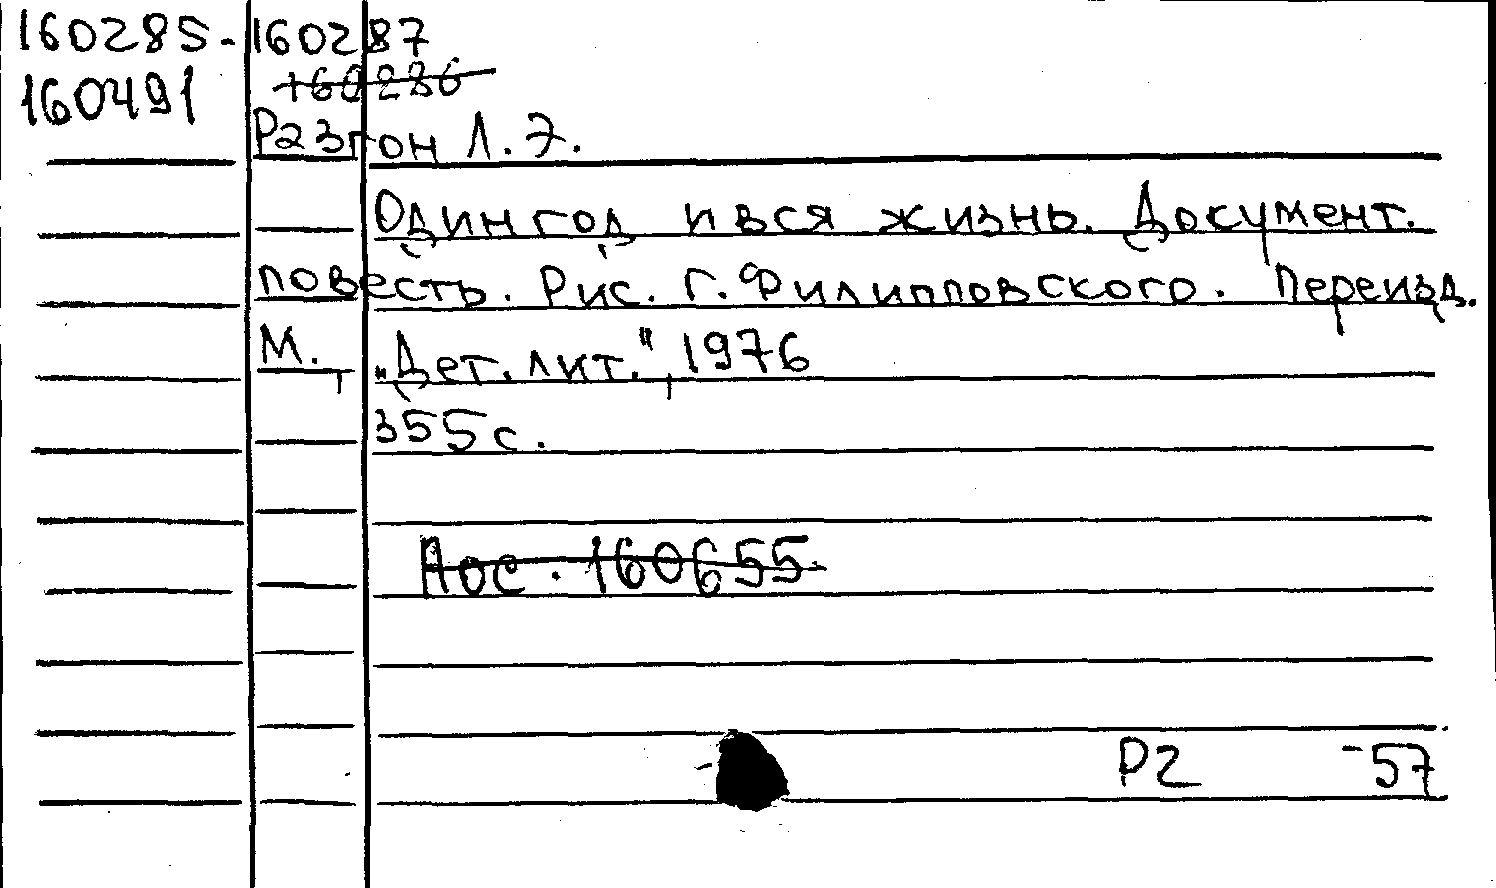 160285-160287
160491 160286
Разгон Л.Э.
Один год и вся жизнь. Документ.
повесть. Рис. Г. Филипповского. Переизд.
М., „Дет. лит.", 1976
355 с.
Аос. 160655
Р2 -57